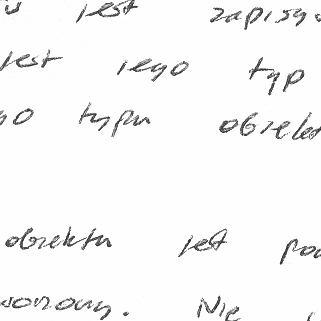 jest zapisy
jest jego typ
go typu obiekt
obiektu jest pod
worzony. Nie